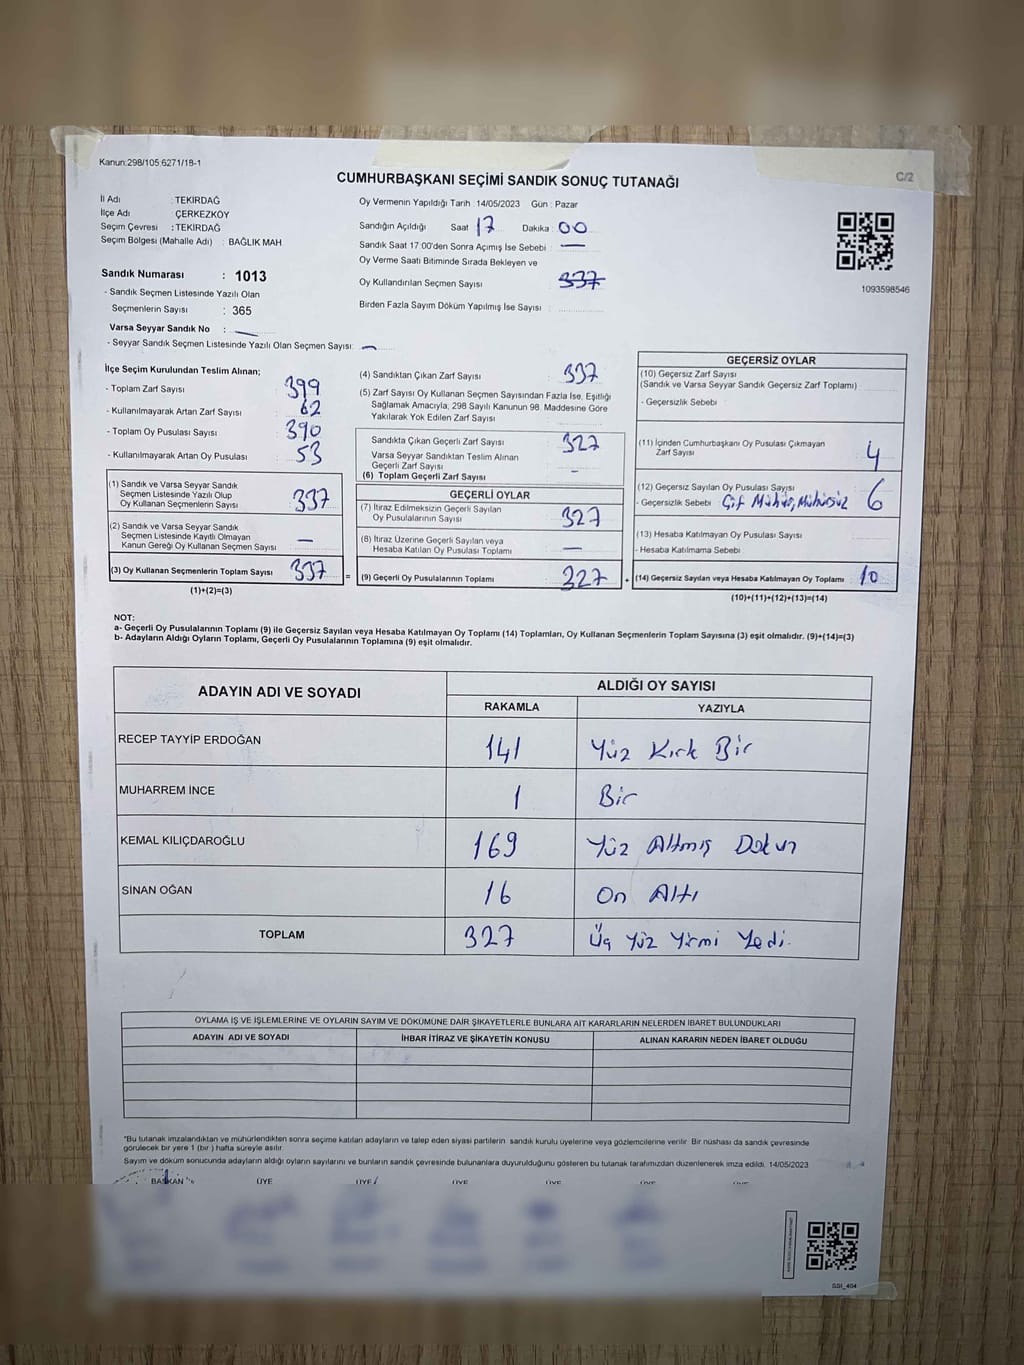 Kanun:298/105,6271/18-1
C/2
CUMHURBAŞKANI SEÇİMİ SANDIK SONUÇ TUTANAĞI
İl Adı : TEKİRDAĞ
İlçe Adı ÇERKEZKÖY
Seçim Çevresi : TEKİRDAĞ
Seçim Bölgesi (Mahalle Adı) : BAĞLIK MAH
Sandık Numarası : 1013
- Sandık Seçmen Listesinde Yazılı Olan
Seçmenlerin Sayısı : 365
Varsa Seyyar Sandık No : —
- Seyyar Sandık Seçmen Listesinde Yazılı Olan Seçmen Sayısı: —
Oy Vermenin Yapıldığı Tarih : 14/05/2023 Gün : Pazar
Sandığın Açıldığı Saat 17 Dakika : 00
Sandık Saat 17:00'den Sonra Açımış İse Sebebi : —
Oy Verme Saati Bitiminde Sırada Bekleyen ve
Oy Kullandırılan Seçmen Sayısı : 337
Birden Fazla Sayım Döküm Yapılmış İse Sayısı :
1093598546
İlçe Seçim Kurulundan Teslim Alınan;
- Toplam Zarf Sayısı 399
- Kullanılmayarak Artan Zarf Sayısı 62
- Toplam Oy Pusulası Sayısı 390
- Kullanılmayarak Artan Oy Pusulası 53
(1) Sandık ve Varsa Seyyar Sandık
Seçmen Listesinde Yazılı Olup
Oy Kullanan Seçmenlerin Sayısı 337
(2) Sandık ve Varsa Seyyar Sandık
Seçmen Listesinde Kayıtlı Olmayan
Kanun Gereği Oy Kullanan Seçmen Sayısı —
(3) Oy Kullanan Seçmenlerin Toplam Sayısı 337
(1)+(2)=(3)
(4) Sandıktan Çıkan Zarf Sayısı : 337
(5) Zarf Sayısı Oy Kullanan Seçmen Sayısından Fazla İse, Eşitliği
Sağlamak Amacıyla, 298 Sayılı Kanunun 98. Maddesine Göre
Yakılarak Yok Edilen Zarf Sayısı
Sandıkta Çıkan Geçerli Zarf Sayısı : 327
Varsa Seyyar Sandıktan Teslim Alınan
Geçerli Zarf Sayısı -
(6) Toplam Geçerli Zarf Sayısı
GEÇERLİ OYLAR
(7) İtiraz Edilmeksizin Geçerli Sayılan
Oy Pusulalarının Sayısı : 327
(8) İtiraz Üzerine Geçerli Sayılan veya
Hesaba Katılan Oy Pusulası Toplamı : —
= (9) Geçerli Oy Pusulalarının Toplamı : 327
GEÇERSİZ OYLAR
(10) Geçersiz Zarf Sayısı
(Sandık ve Varsa Seyyar Sandık Geçersiz Zarf Toplamı)
- Geçersizlik Sebebi :
(11) İçinden Cumhurbaşkanı Oy Pusulası Çıkmayan
Zarf Sayısı : 4
(12) Geçersiz Sayılan Oy Pusulası Sayısı 6
- Geçersizlik Sebebi : Çif Mühür, Mühürsüz
(13) Hesaba Katılmayan Oy Pusulası Sayısı
- Hesaba Katılmama Sebebi
+ (14) Geçersiz Sayılan veya Hesaba Katılmayan Oy Toplamı : 10
(10)+(11)+(12)+(13)=(14)
NOT:
a- Geçerli Oy Pusulalarının Toplamı (9) ile Geçersiz Sayılan veya Hesaba Katılmayan Oy Toplamı (14) Toplamları, Oy Kullanan Seçmenlerin Toplam Sayısına (3) eşit olmalıdır. (9)+(14)=(3)
b- Adayların Aldığı Oyların Toplamı, Geçerli Oy Pusulalarının Toplamına (9) eşit olmalıdır.
ADAYIN ADI VE SOYADI ALDIĞI OY SAYISI
RAKAMLA YAZIYLA
RECEP TAYYİP ERDOĞAN 141 Yüz Kırk Bir
MUHARREM İNCE 1 Bir
KEMAL KILIÇDAROĞLU 169 Yüz Altmış Dokuz
SİNAN OĞAN 16 On Altı
TOPLAM 327 Üç Yüz Yirmi Yedi.
OYLAMA İŞ VE İŞLEMLERİNE VE OYLARIN SAYIM VE DÖKÜMÜNE DAİR ŞİKAYETLERLE BUNLARA AİT KARARLARIN NELERDEN İBARET BULUNDUKLARI
ADAYIN ADI VE SOYADI İHBAR İTİRAZ VE ŞİKAYETİN KONUSU ALINAN KARARIN NEDEN İBARET OLDUĞU
*Bu tutanak imzalandıktan ve mühürlendikten sonra seçime katılan adayların ve talep eden siyasi partilerin sandık kurulu üyelerine veya gözlemcilerine verilir. Bir nüshası da sandık çevresinde
görülecek bir yere 1 (bir) hafta süreyle asılır.
Sayım ve döküm sonucunda adayların aldığı oyların sayılarını ve bunların sandık çevresinde bulunanlara duyurulduğunu gösteren bu tutanak tarafımızdan düzenlenerek imza edildi. 14/05/2023
BAŞKAN ÜYE ÜYE ÜYE ÜYE ÜYE
SSI_404